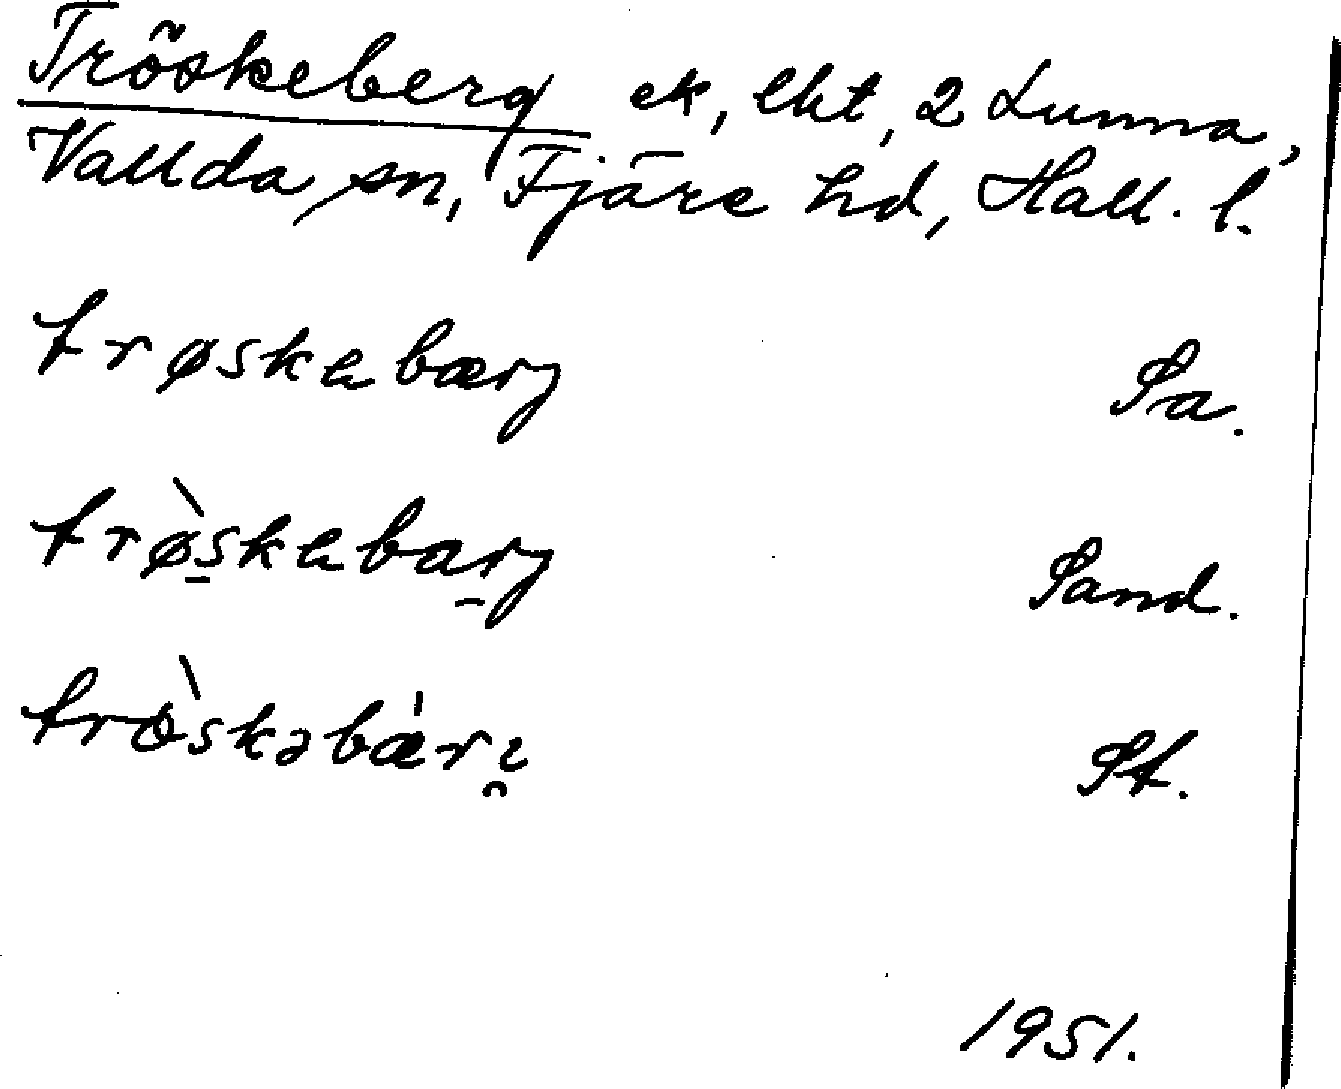 Tröskeberg ek, lht, 2 Lunna,
Vallda sn, Fjäre hd, Hall. l.
trøskabærj Sa.
trø̀s̠kabar̠j Sand.
trɵ̀skəbær St.
1951.